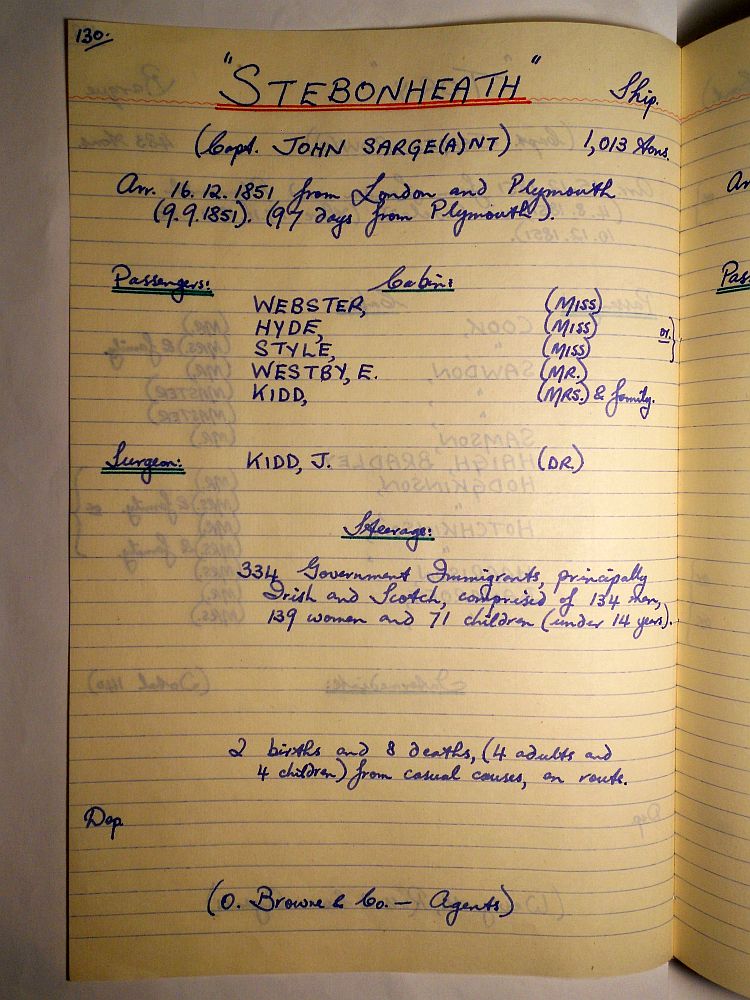 130.
"STEBONHEATH" Ship.
(Capt. JOHN SARGE(A)NT) 1,013 tons.
Arr. 16.12.1851 from London and Plymouth
(9.9.1851). (97 days from Plymouth).
Passengers: Cabin:
WEBSTER, (MISS)
HYDE, (MISS) or.
STYLE, (MISS)
WESTBY, E. (MR.)
KIDD, (MRS.) & family.
Surgeon: KIDD, J. (DR.)
Steerage:
334 Government Immigrants, principally
Irish and Scotch, comprised of 134 men,
139 women and 71 children (under 14 years).
2 births and 8 deaths, (4 adults and
4 children) from casual causes, en route.
Dep
(O. Browne & Co. — Agents)